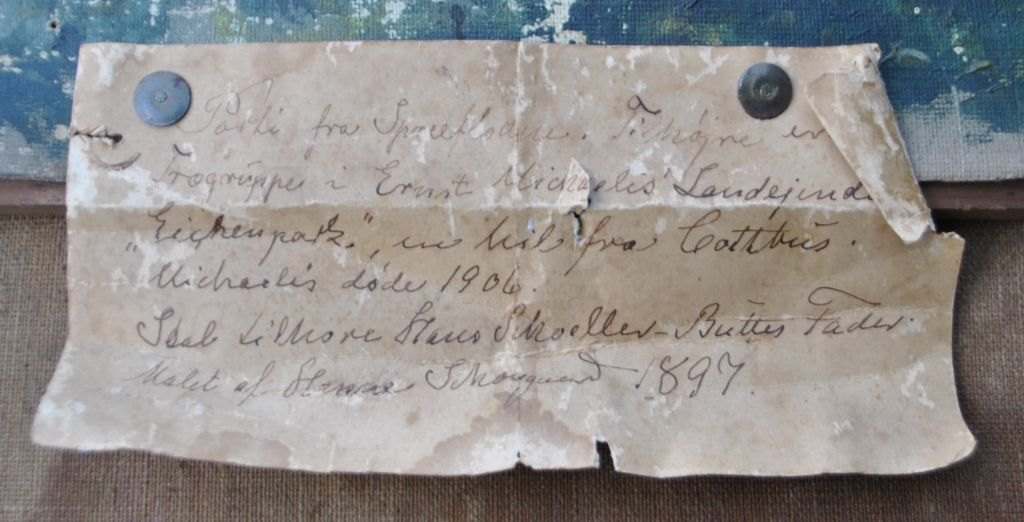 Parti fra Spreefloden. Tilhøjre er
Trægruppe i Ernst Michaelis' Landejend.
„Eichenpark", en Mil fra Cottbus.
Michaelis døde 1906.
Skal tilhøre Hans Schoeller-Buttes Fader.
Malet af Skovgaard 1897.